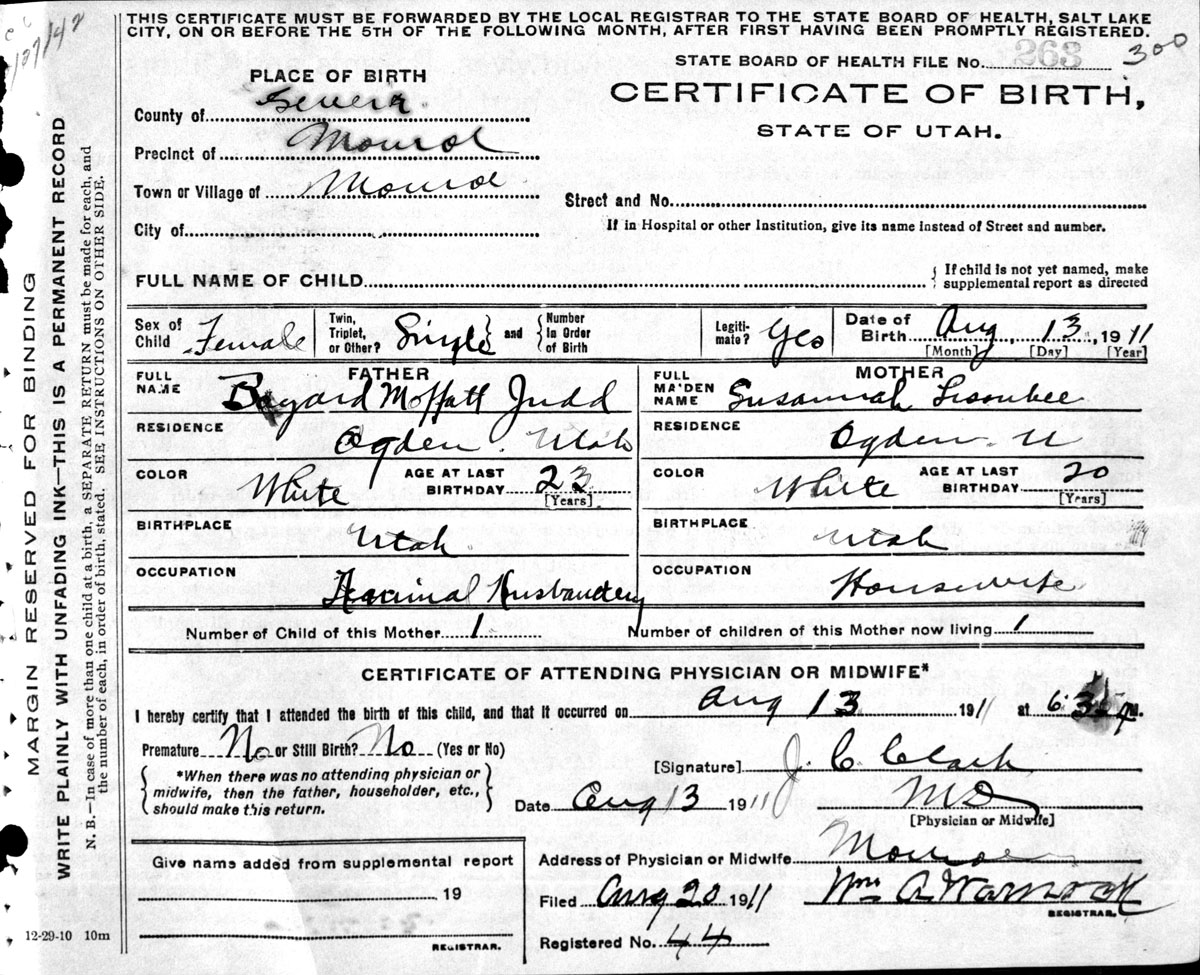 THIS CERTIFICATE MUST BE FORWARDED BY THE LOCAL REGISTRAR TO THE STATE BOARD OF HEALTH, SALT LAKE
CITY, ON OR BEFORE THE 5TH OF THE FOLLOWING MONTH, AFTER FIRST HAVING BEEN PROMPTLY REGISTERED.
STATE BOARD OF HEALTH FILE No. 263 300
PLACE OF BIRTH
CERTIFICATE OF BIRTH,
STATE OF UTAH.
County of Sevier.
Precinct of Monroe
Town or Village of Monroe
Street and No.
City of
If in Hospital or other Institution, give its name instead of Street and number.
FULL NAME OF CHILD
If child is not yet named, make
supplemental report as directed
Sex of Child Female
Twin, Triplet, or Other? Single and Number in Order of Birth
Legitimate? Yes
Date of Birth Aug. 13, 1911
[Month] [Day] [Year]
FATHER
FULL NAME Bayard Moffatt Judd
RESIDENCE Ogden. Utah
COLOR White AGE AT LAST BIRTHDAY 23 [Years]
BIRTHPLACE Utah.
OCCUPATION Husbandry
MOTHER
FULL MAIDEN NAME Susannah Lisonbee
RESIDENCE Ogden. U
COLOR White AGE AT LAST BIRTHDAY 20 [Years]
BIRTHPLACE Utah
OCCUPATION Housewife
Number of Child of this Mother 1. Number of children of this Mother now living 1
CERTIFICATE OF ATTENDING PHYSICIAN OR MIDWIFE*
I hereby certify that I attended the birth of this child, and that it occurred on Aug 13 1911 at 6:3 M.
Premature No or Still Birth? No (Yes or No)
*When there was no attending physician or
midwife, then the father, householder, etc.,
should make this return.
[Signature] J. C. Clark
Date Aug 13 1911 MD
[Physician or Midwife]
Give name added from supplemental report
19
REGISTRAR.
Address of Physician or Midwife Monroe
Filed Aug 20 1911 Wm A Warnock
REGISTRAR.
Registered No. 44
12-29-10 10m
MARGIN RESERVED FOR BINDING
WRITE PLAINLY WITH UNFADING INK—THIS IS A PERMANENT RECORD
N. B.—In case of more than one child at a birth, a SEPARATE RETURN must be made for each, and
the number of each, in order of birth, stated. SEE INSTRUCTIONS ON OTHER SIDE.